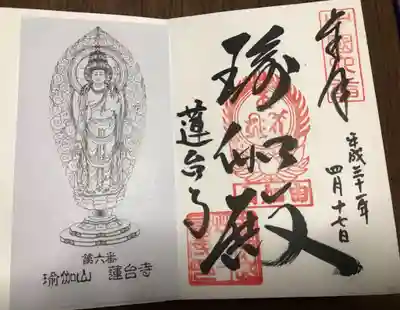 奉拝
平成三十一年
四月十七日
瑜伽殿
蓮台寺
第六番
瑜伽山 蓮台寺